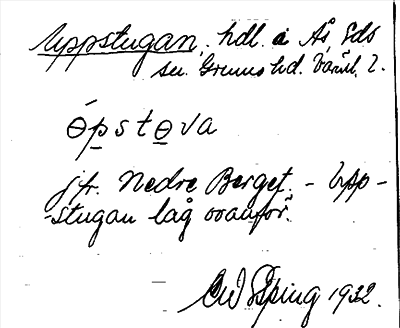 Uppstugan, hdl. å Ås, Eds
sn. Grums hd. Värml. l.
ɵ́pstɵva
jfr. Nedre Berget. - Upp-
-stugan låg ovanför.
1932.